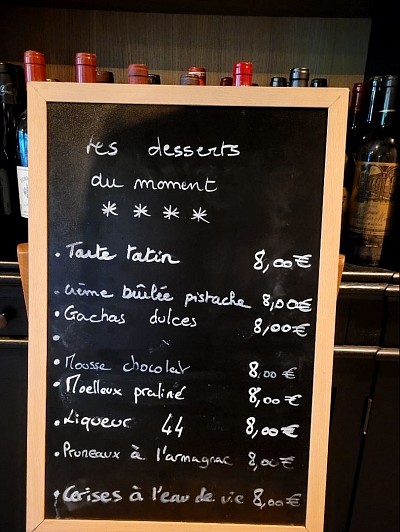 les desserts
du moment
* * * *
• Tarte tatin 8,00€
• crème brûlée pistache 8,00€
• Gachas dulces 8,00€
•
• Mousse chocolat 8,00€
• Moelleux praliné 8,00€
• Liqueur 44 8,00€
• Pruneaux à l'armagnac 8,00€
• Cerises à l'eau de vie 8,00€